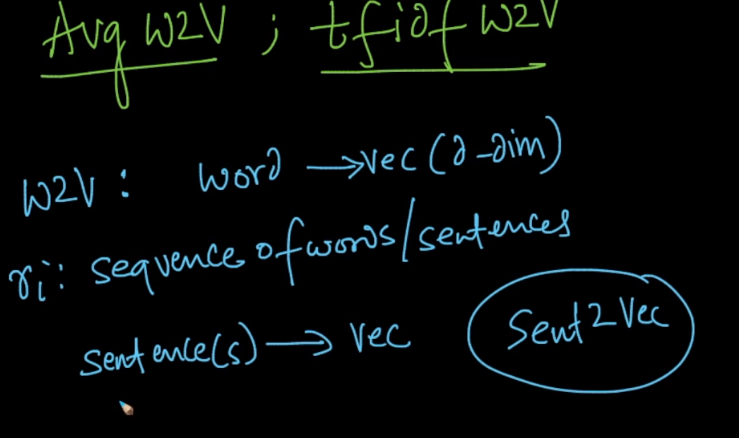 Avg W2V ; tfidf W2V
W2V : word → vec (d-dim)
ri: sequence of words/sentences
sentence(s) → vec
Sent2Vec